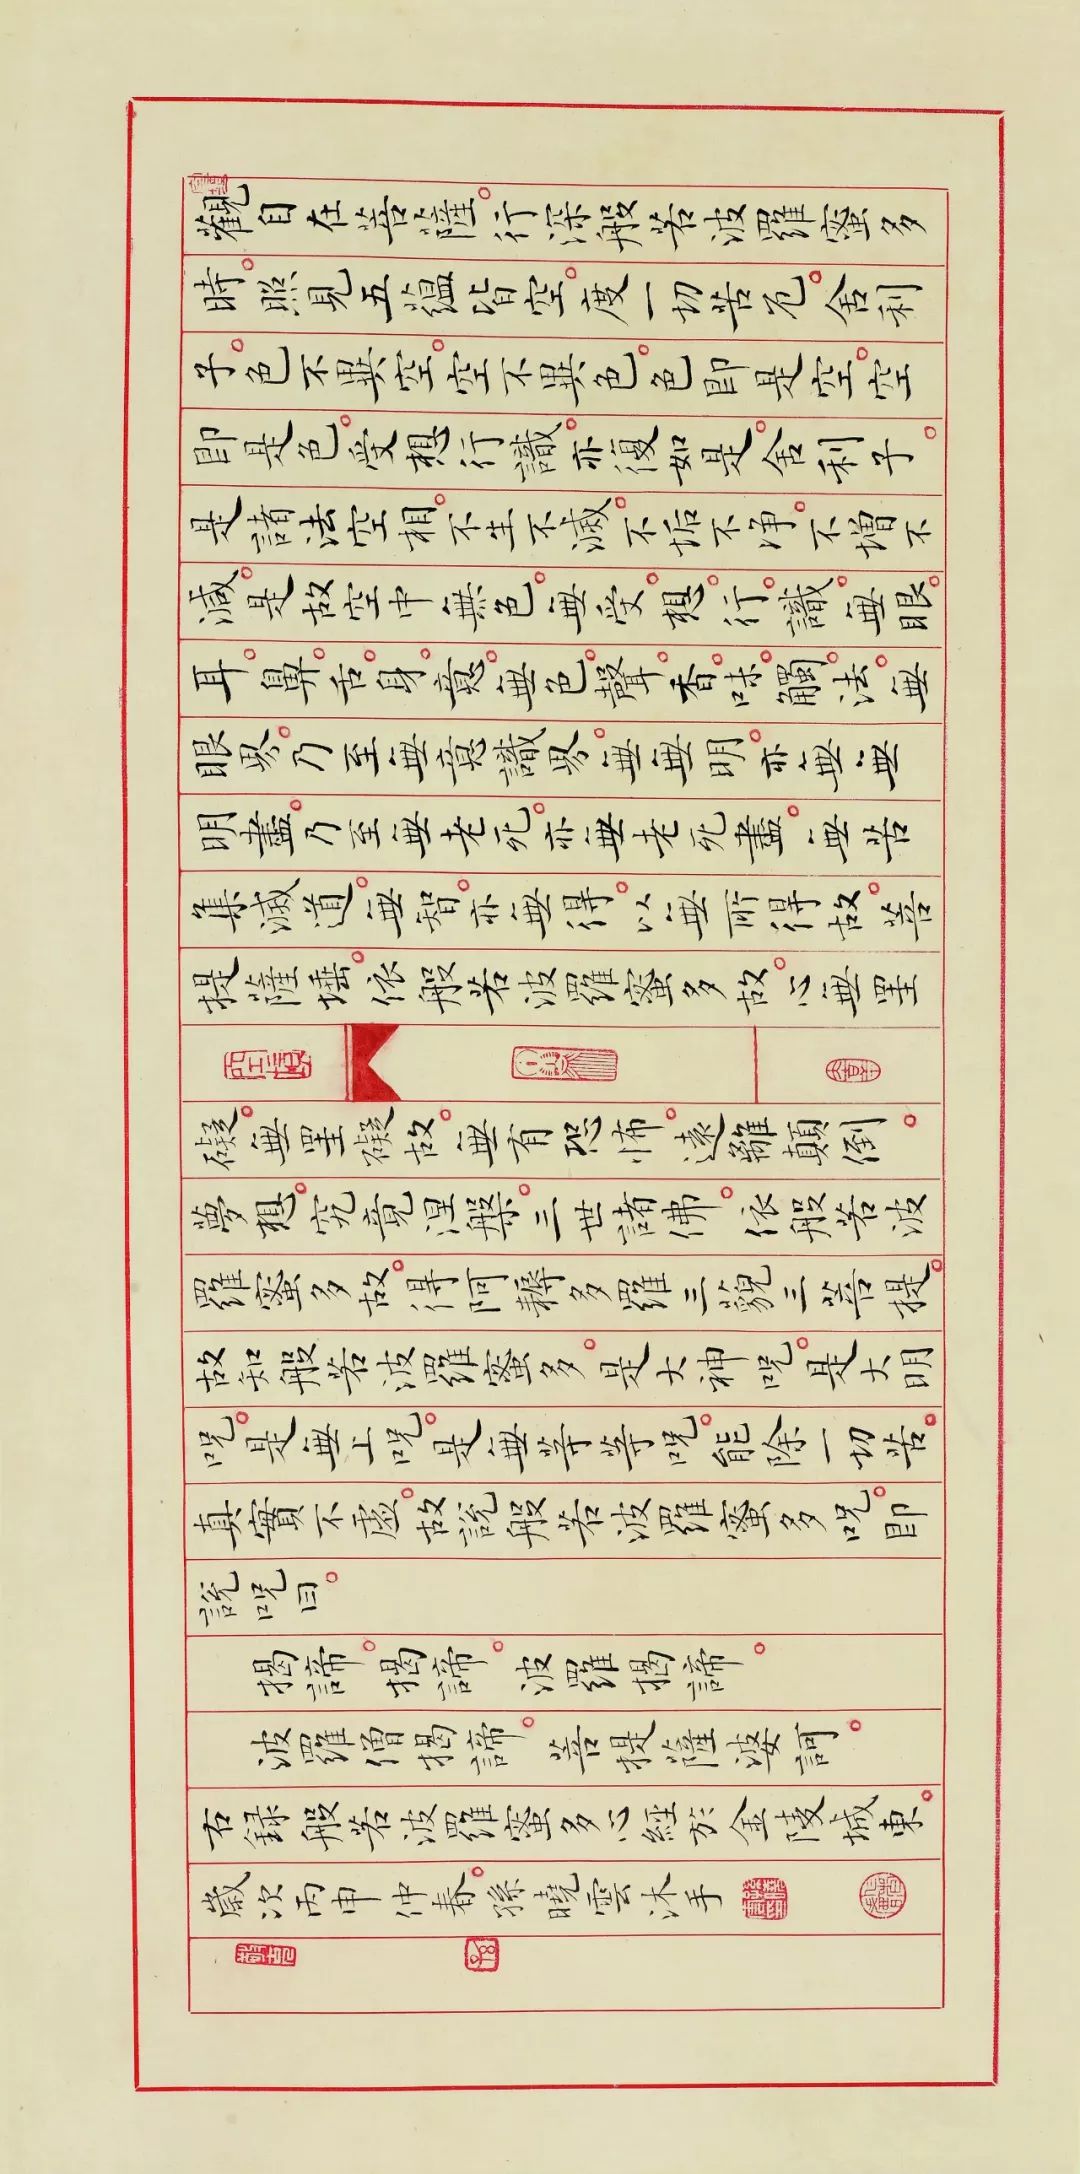 觀自在菩薩行深般若波羅蜜多
時照見五蘊皆空度一切苦厄舍利
子色不異空空不異色色即是空空
即是色受想行識亦復如是舍利子
是諸法空相不生不滅不垢不净不增不
減是故空中無色無受想行識無眼
耳鼻舌身意無色聲香味觸法無
眼界乃至無意識界無無明亦無無
明盡乃至無老死亦無老死盡無苦
集滅道無智亦無得以無所得故菩
提薩埵依般若波羅蜜多故心無罣
礙無罣礙故無有恐怖遠離顛倒
夢想究竟涅槃三世諸佛依般若波
羅蜜多故得阿耨多羅三藐三菩提
故知般若波羅蜜多是大神咒是大明
咒是無上咒是無等等咒能除一切苦
真實不虛故說般若波羅蜜多咒即
說咒曰
揭諦揭諦 波羅揭諦
波羅僧揭諦 菩提薩婆訶
右録般若波羅蜜多心經於金陵城東
歲次丙申仲春孫曉雲沐手